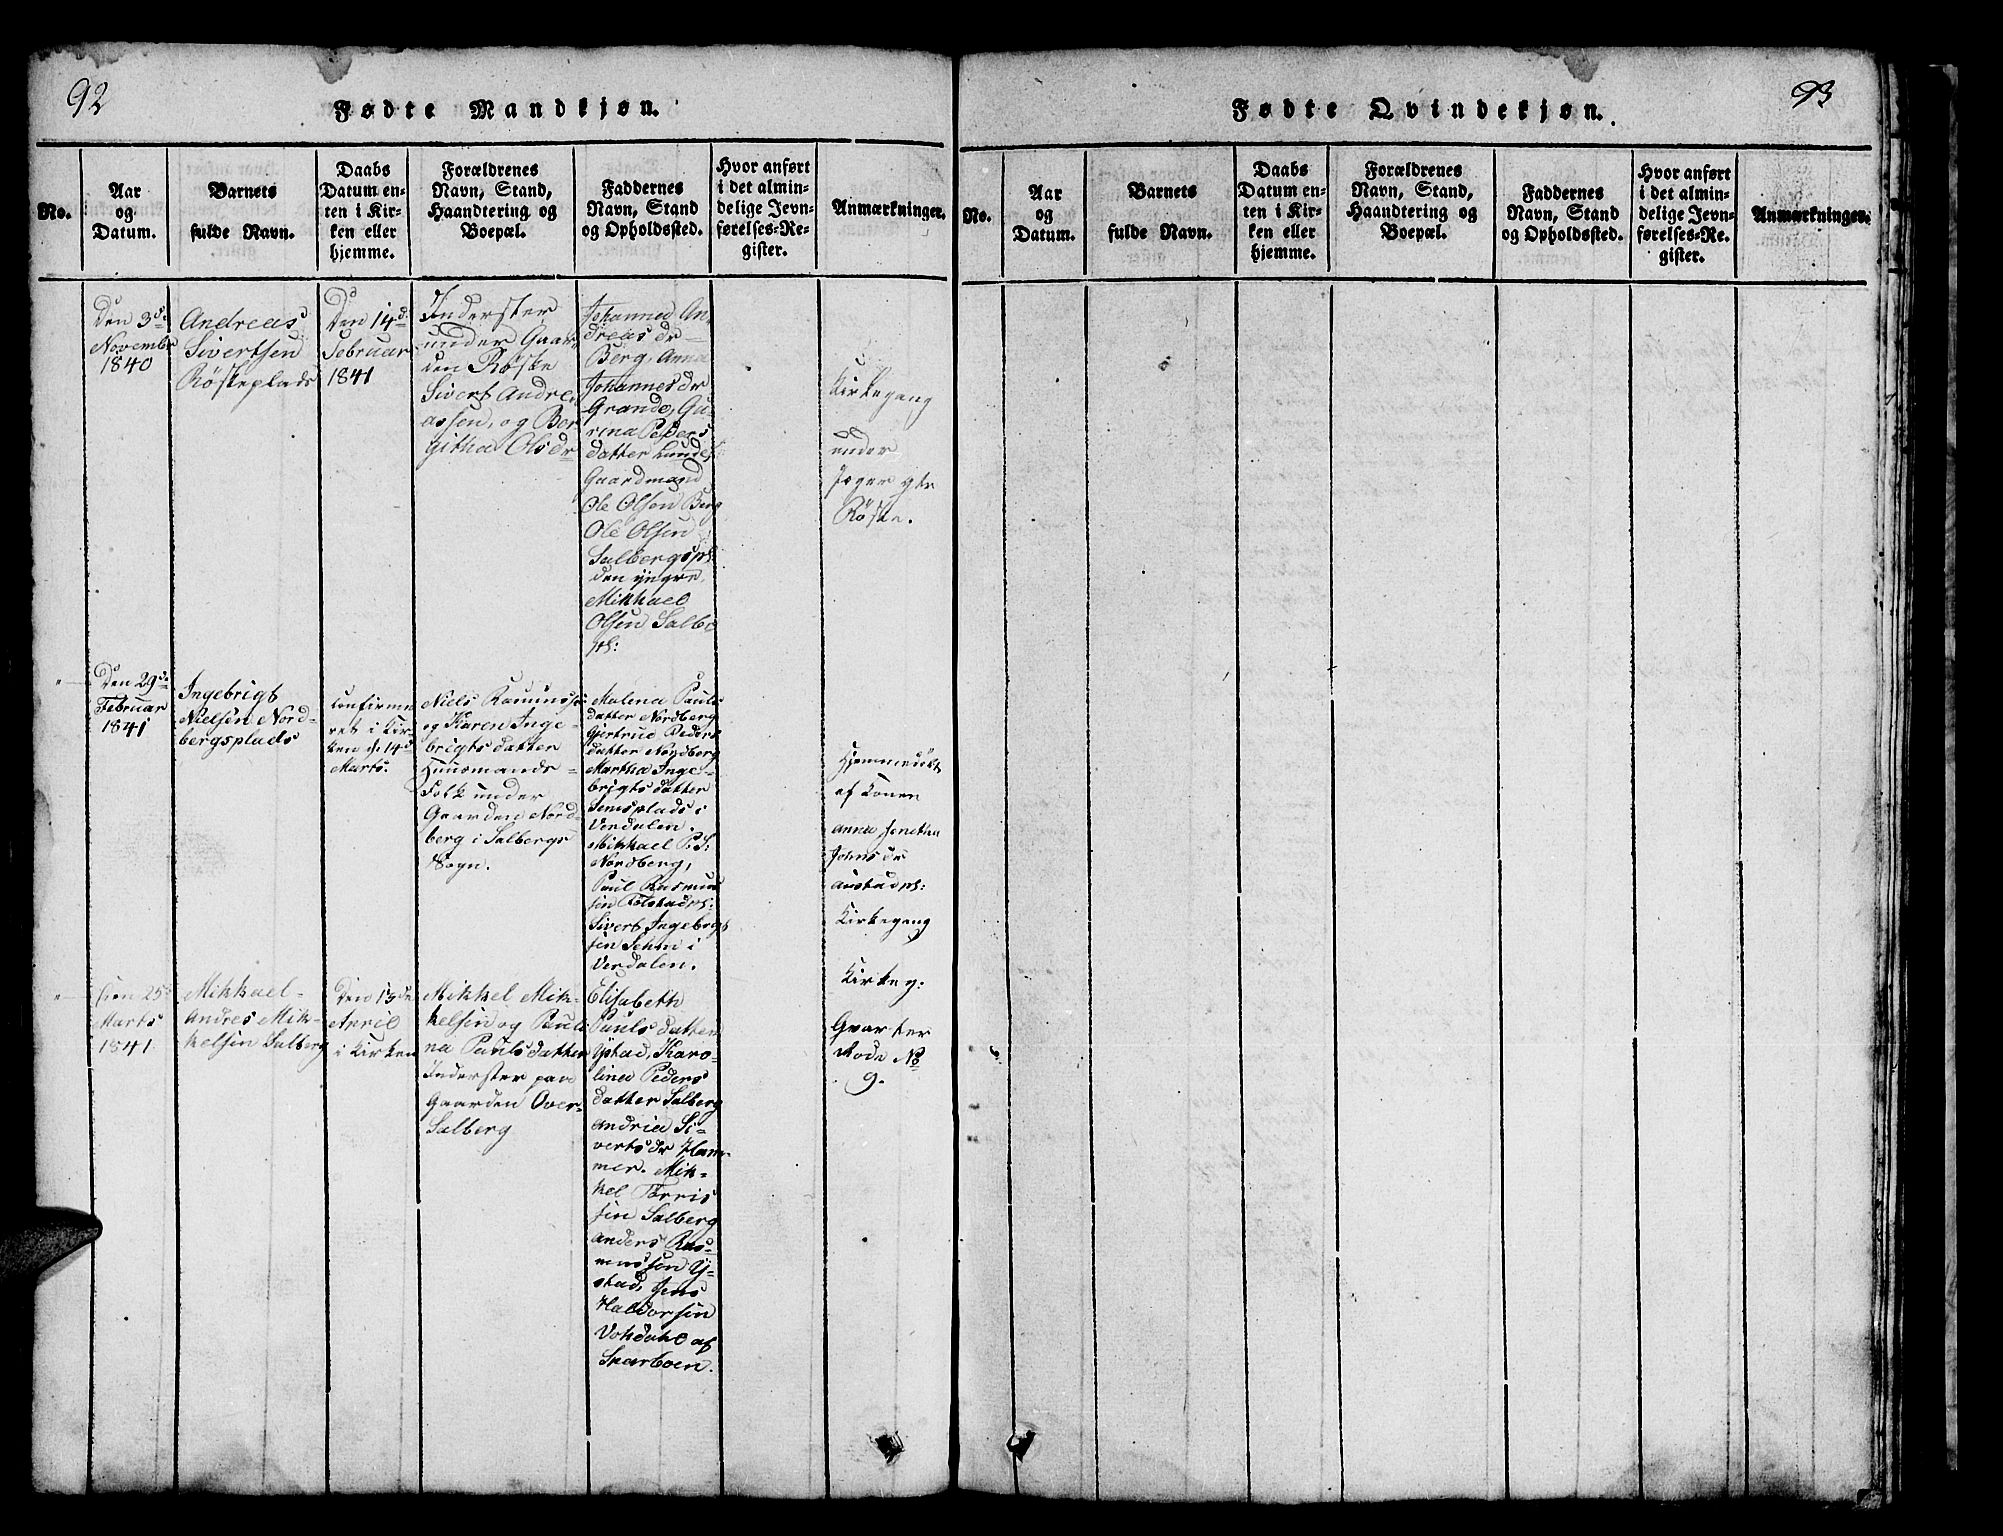 92
Fødte Mandkjøn.
No.
Aar
og
Datum.
Barnets
fulde Navn.
Daabs
Datum en-
ten i Kir-
ken eller
hjemme.
Forældrenes
Navn, Stand,
Haandtering og
Boepæl.
Faddernes
Navn, Stand
og Opholdssted.
Hvor anført
i det almin-
delige Jevn-
førelses-Re-
gister.
Anmærkninger.
Den 3de
November
1840
Andreas
Sivertsen
Röskeplads
Den 14de
Februar
1841
Inderster
under Gaar
den Röske
Sivert Andre
assen, og Ber
githa Olsdr
Johanna An
dreas dr
Berg, Anna
Johannes dr
Grande, Gu
rina Peders
datter Lunde,
Gaardmand
Ole Olsen Berg
Ole Olsen
Salbergspl:
den yngre,
Mikkael
Olsen Salb
pl:
Kirkegang
under
Röske.
Den 29de
Februar
1841
Ingebrigt
Nielsen Nord-
bergsplads
confirme
ret i Kir-
ken d. 14d
Marts.
Niels Rasmuss
og Karen Inge-
brigtsdatter
Huusmands-
Folk under
Gaarden Nord-
berg i Salbergs
Sogn.
Malena Pauls
datter Nordberg
Gjertrud Peders
datter Nordberg
Martha Inge-
brigts datter
Semsplads i
Verdalen.
Mikkael P. S.
Nordberg,
Paul Rasmus
sen Tolstadpl:
Sivert Ingebrigt
sen Sehm i
Verdalen.
Hjemmedöbt
af Konen
Anna Jonetha
Johns dr
austadpl:
Kirkegang
Den 25de
Marts
1841
Mikkael
Andres Mik-
kelsen Salberg
Den 13de
April
i Kirken
Mikkel Mik-
kelsen og Pauli
na Pauls datter
Inderster paa
Gaarden Over-
Salberg
Elisabeth
Pauls datter
Ystad, Karo-
lina Peders
datter Salberg
Andria Si-
verts dr Ham-
mer. Mik-
kel Torris
sen Salberg
Anders Ras-
mussen Y-
stad, Jens
Haldorsen
Vohdahl af
Skarboen.
Kirkeg:
Qvarter
Rode No
9.
93
Fødte Qvindekjøn.
No.
Aar
og
Datum.
Barnets
fulde Navn.
Daabs
Datum en-
ten i Kir-
ken eller
hjemme.
Forældrenes
Navn, Stand,
Haandtering og
Boepæl.
Faddernes
Navn, Stand
og Opholdssted.
Hvor anført
i det almin-
delige Jevn-
førelses-Re-
gister.
Anmærkninger.